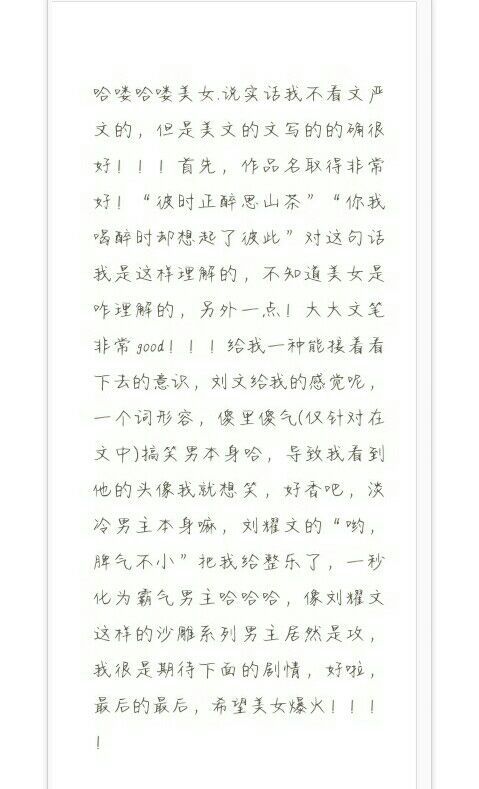 哈喽哈喽美女.说实话我不看文严
文的，但是美文的文写的的确很
好！！！首先，作品名取得非常
好！“彼时正醉思山茶”“你我
喝醉时却想起了彼此”对这句话
我是这样理解的，不知道美女是
咋理解的，另外一点！大大文笔
非常good！！！给我一种能接着看
下去的意识，刘文给我的感觉呢，
一个词形容，傻里傻气(仅针对在
文中)搞笑男本身哈，导致我看到
他的头像我就想笑，好香吧，淡
冷男主本身嘛，刘耀文的“哟，
脾气不小”把我给整乐了，一秒
化为霸气男主哈哈哈，像刘耀文
这样的沙雕系列男主居然是攻，
我很是期待下面的剧情，好啦，
最后的最后，希望美女爆火！！！
！